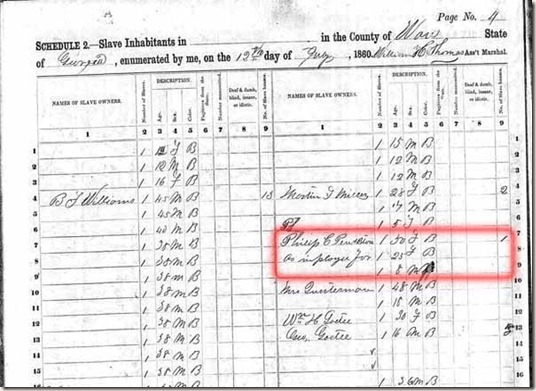 Page No. 4
SCHEDULE 2.—Slave Inhabitants in in the County of Ware State
of Georgia, enumerated by me, on the 12th day of July, 1860. William H Thomas Ass't Marshal.
NAMES OF SLAVE OWNERS. Number of Slaves. DESCRIPTION. Age. Sex. Color. Fugitives from the State. Number manumitted. Deaf & dumb, blind, insane, or idiotic. No. of Slave houses. NAMES OF SLAVE OWNERS. Number of Slaves. DESCRIPTION. Age. Sex. Color. Fugitives from the State. Number manumitted. Deaf & dumb, blind, insane, or idiotic. No. of Slave houses.
1 2 3 4 5 6 7 8 9 1 2 3 4 5 6 7 8 9
1 1 F B 1 15 M B 1
2 1 12 M B 1 12 M B 2
3 1 16 F B 1 12 M B 3
4 B F Williams 1 45 M B 13 Martin F Miller 1 28 F B 2
5 1 45 M B 1 M B 5
6 1 40 M B 1 5 F B 6
7 1 35 M B Philip C Pendleton 1 50 F B 1 7
8 1 38 M B as imployer for 1 25 F B 8
9 1 38 M B 1 8 M 9
10 1 38 M B Mrs 1 48 M B 10
11 1 38 M B 1 18 M B 11
12 1 38 M B Wm H Goetee 1 30 F B 12
13 1 38 M B Goetee 1 16 M B 13
14 1 38 M B
15 1 38 M B
16 1 M B 1 36 M B